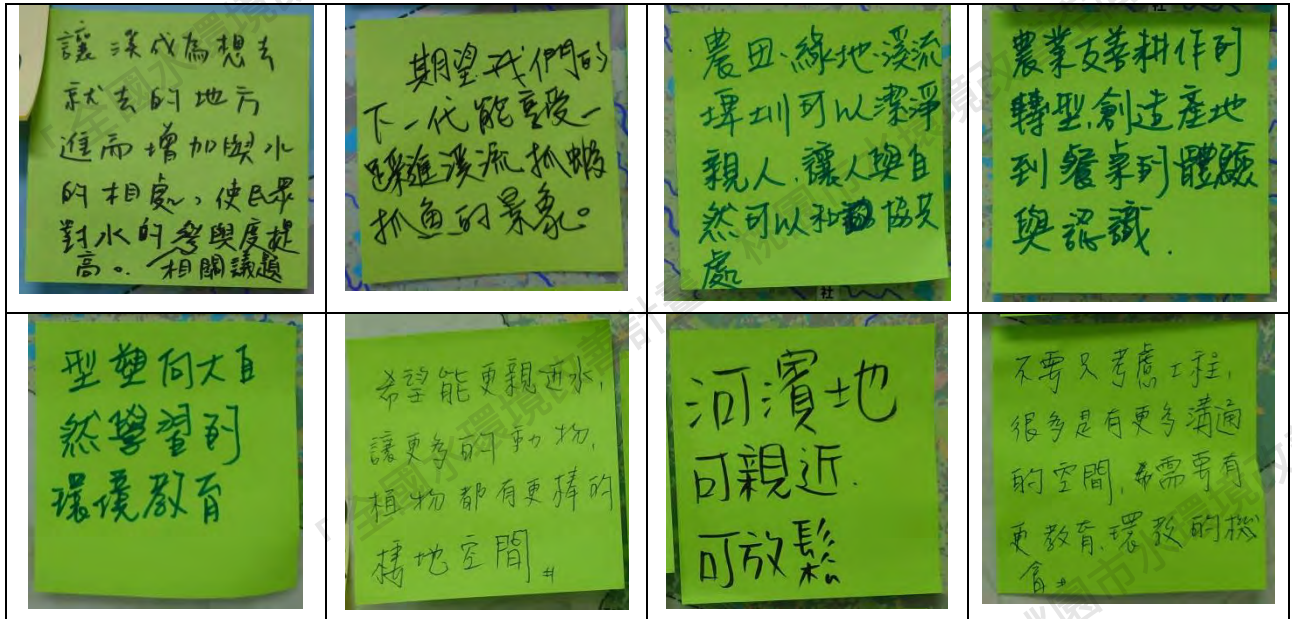 讓溪成為想去
就去的地方
進而增加與水
的相處,使民眾
對水的參與度提
高。相關議題
期望我們的
下一代能享受一
踩進溪流抓蝦
抓魚的景象。
農田、綠地、溪流
埤圳可以潔淨
親人、讓人與自
然可以和協共
處
農業友善耕作的
轉型,創造產地
到餐桌的體驗
與認識.
型塑向大自
然學習的
環境教育
希望能更親近水,
讓更多的動物,
植物都有更棒的
棲地空間。
河濱地
可親近.
可放鬆
不要只考慮工程,
很多是有更多溝通
的空間,需要有
更教育、環教的機
會